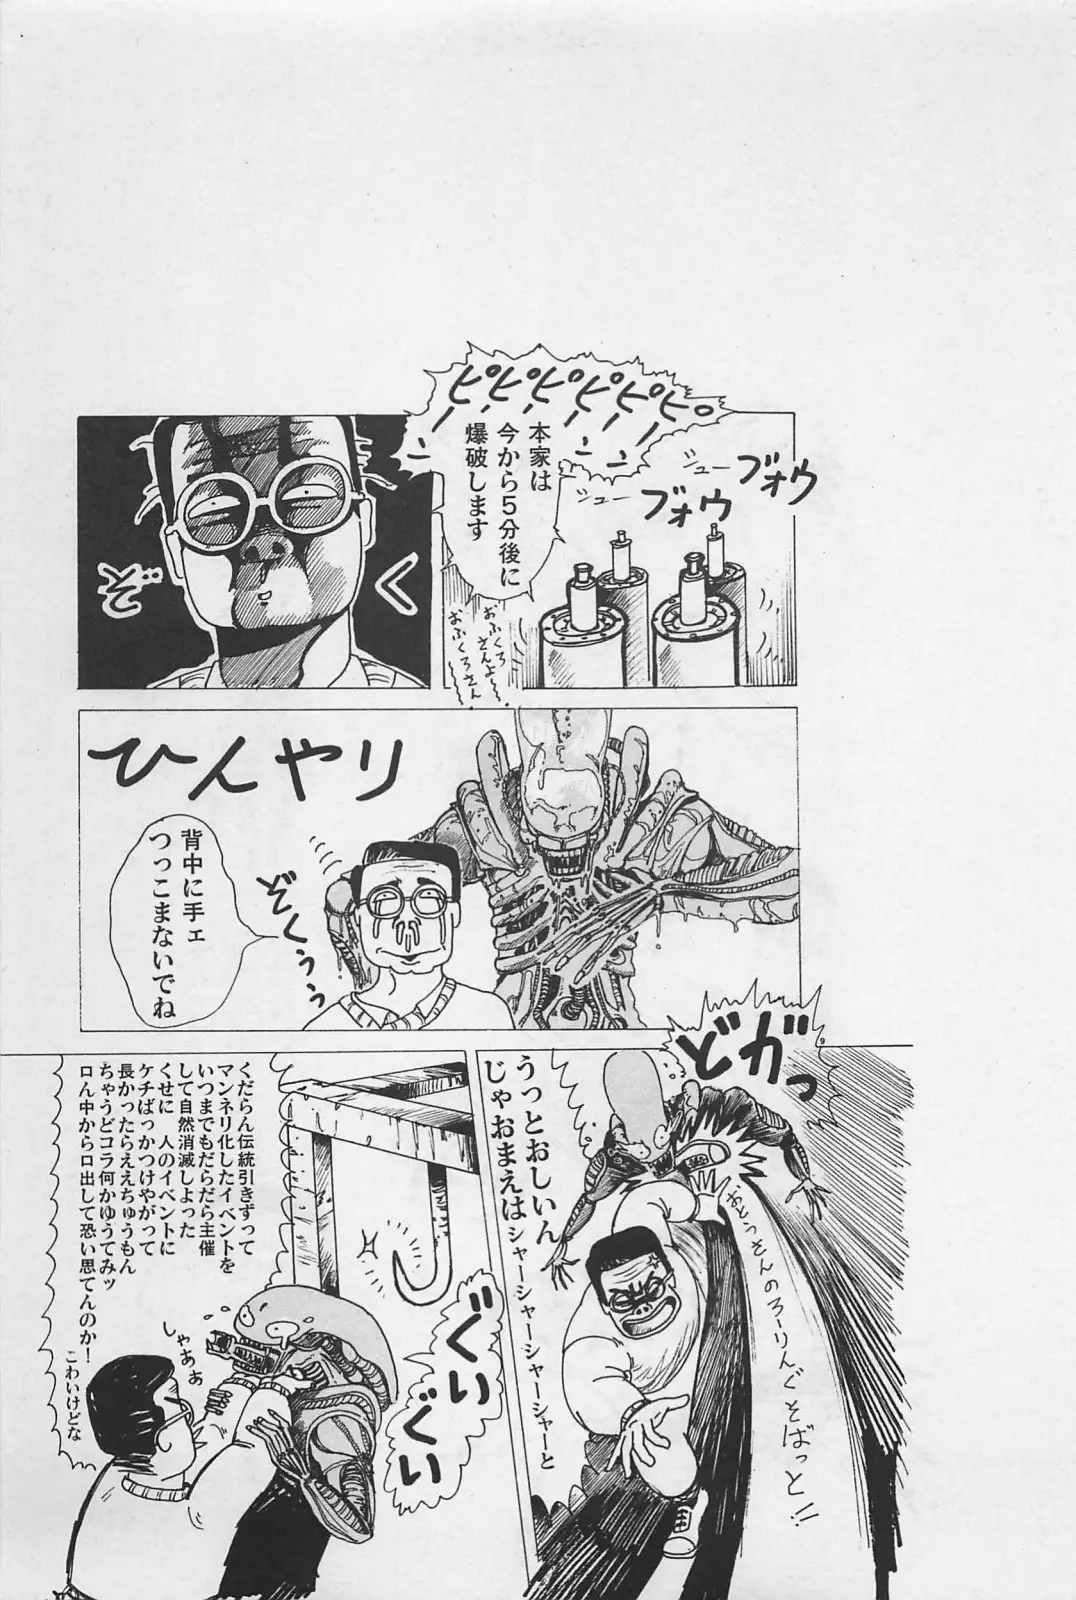 ピーピーピーピーピーピー
本家は
今から5分後に
爆破します
シュー
ブォウ
シュー
ブォウ
おふくろさんよ〜
おふくろさん
く
ひんやり
ぞくぅぅ
背中に手ェ
つっこまないでね
どガっ
うっとおしいん
じゃおまえは
シャーシャーシャーシャーシャーと
おとっさんのろーりんぐそばっと!!
くだらん伝統引きずって
マンネリ化したイベントを
いつまでもだらだら主催
して自然消滅しよった
くせに 人のイベントに
ケチばっかつけやがって
長かったらええちゅうもん
ちゃうどコラ何かゆうてみッ
口ん中から口出して恐い思てんのか!
こわいけどな
しゃあぁ
ぐいぐい